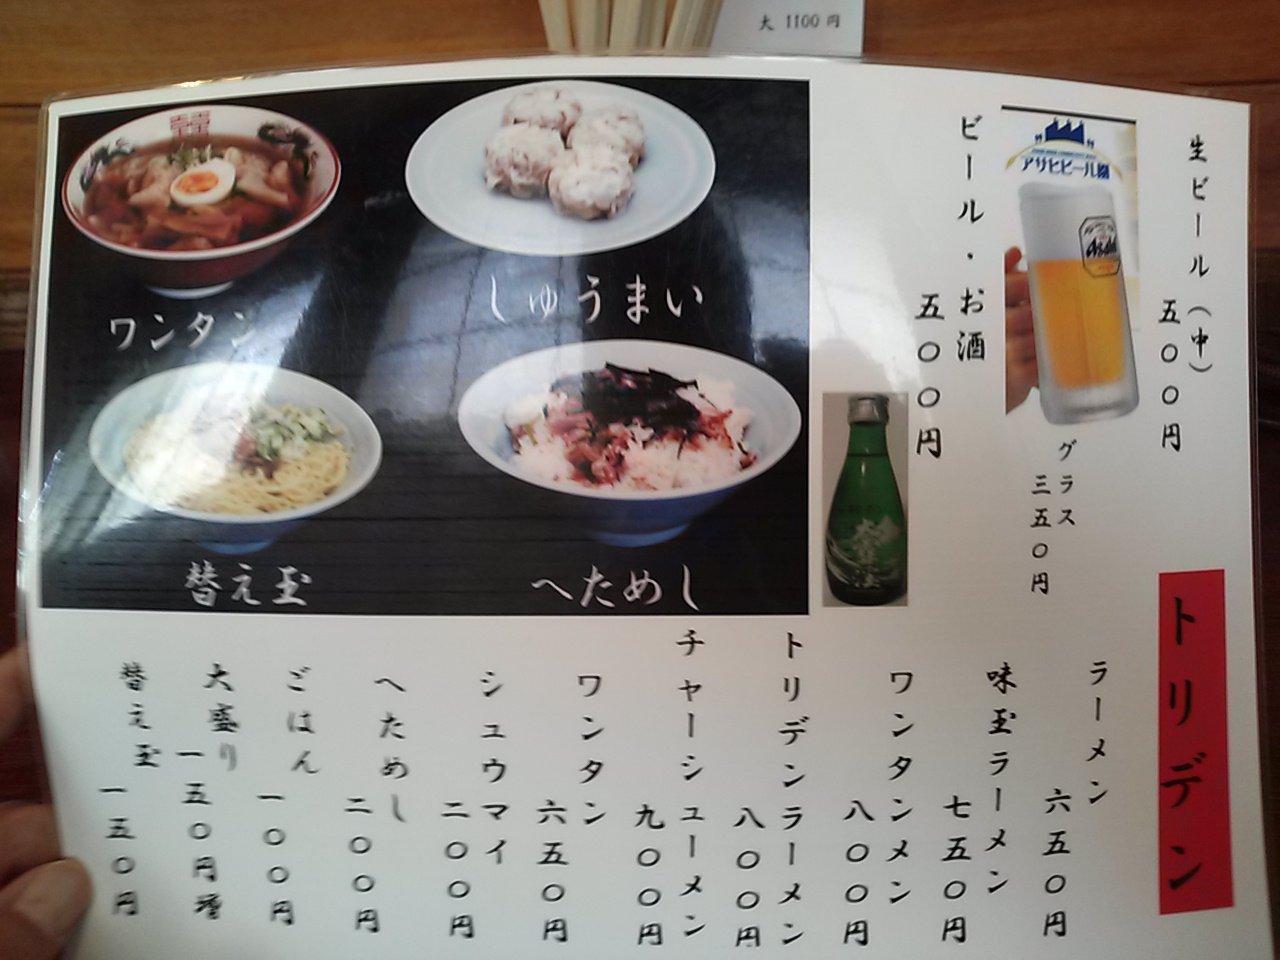 大 1100 円
生ビール(中)
五〇〇円
アサヒビール園
Asahi
グラス
三五〇円
ビール・お酒
五〇〇円
ワンタン
しゅうまい
替え玉
へためし
トリデン
ラーメン
六五〇円
味玉ラーメン
七五〇円
ワンタンメン
八〇〇円
トリデンラーメン
八〇〇円
チャーシューメン
九〇〇円
ワンタン
六五〇円
シュウマイ
二〇〇円
へためし
二〇〇円
ごはん
一〇〇円
大盛り
一五〇円増
替え玉
一五〇円